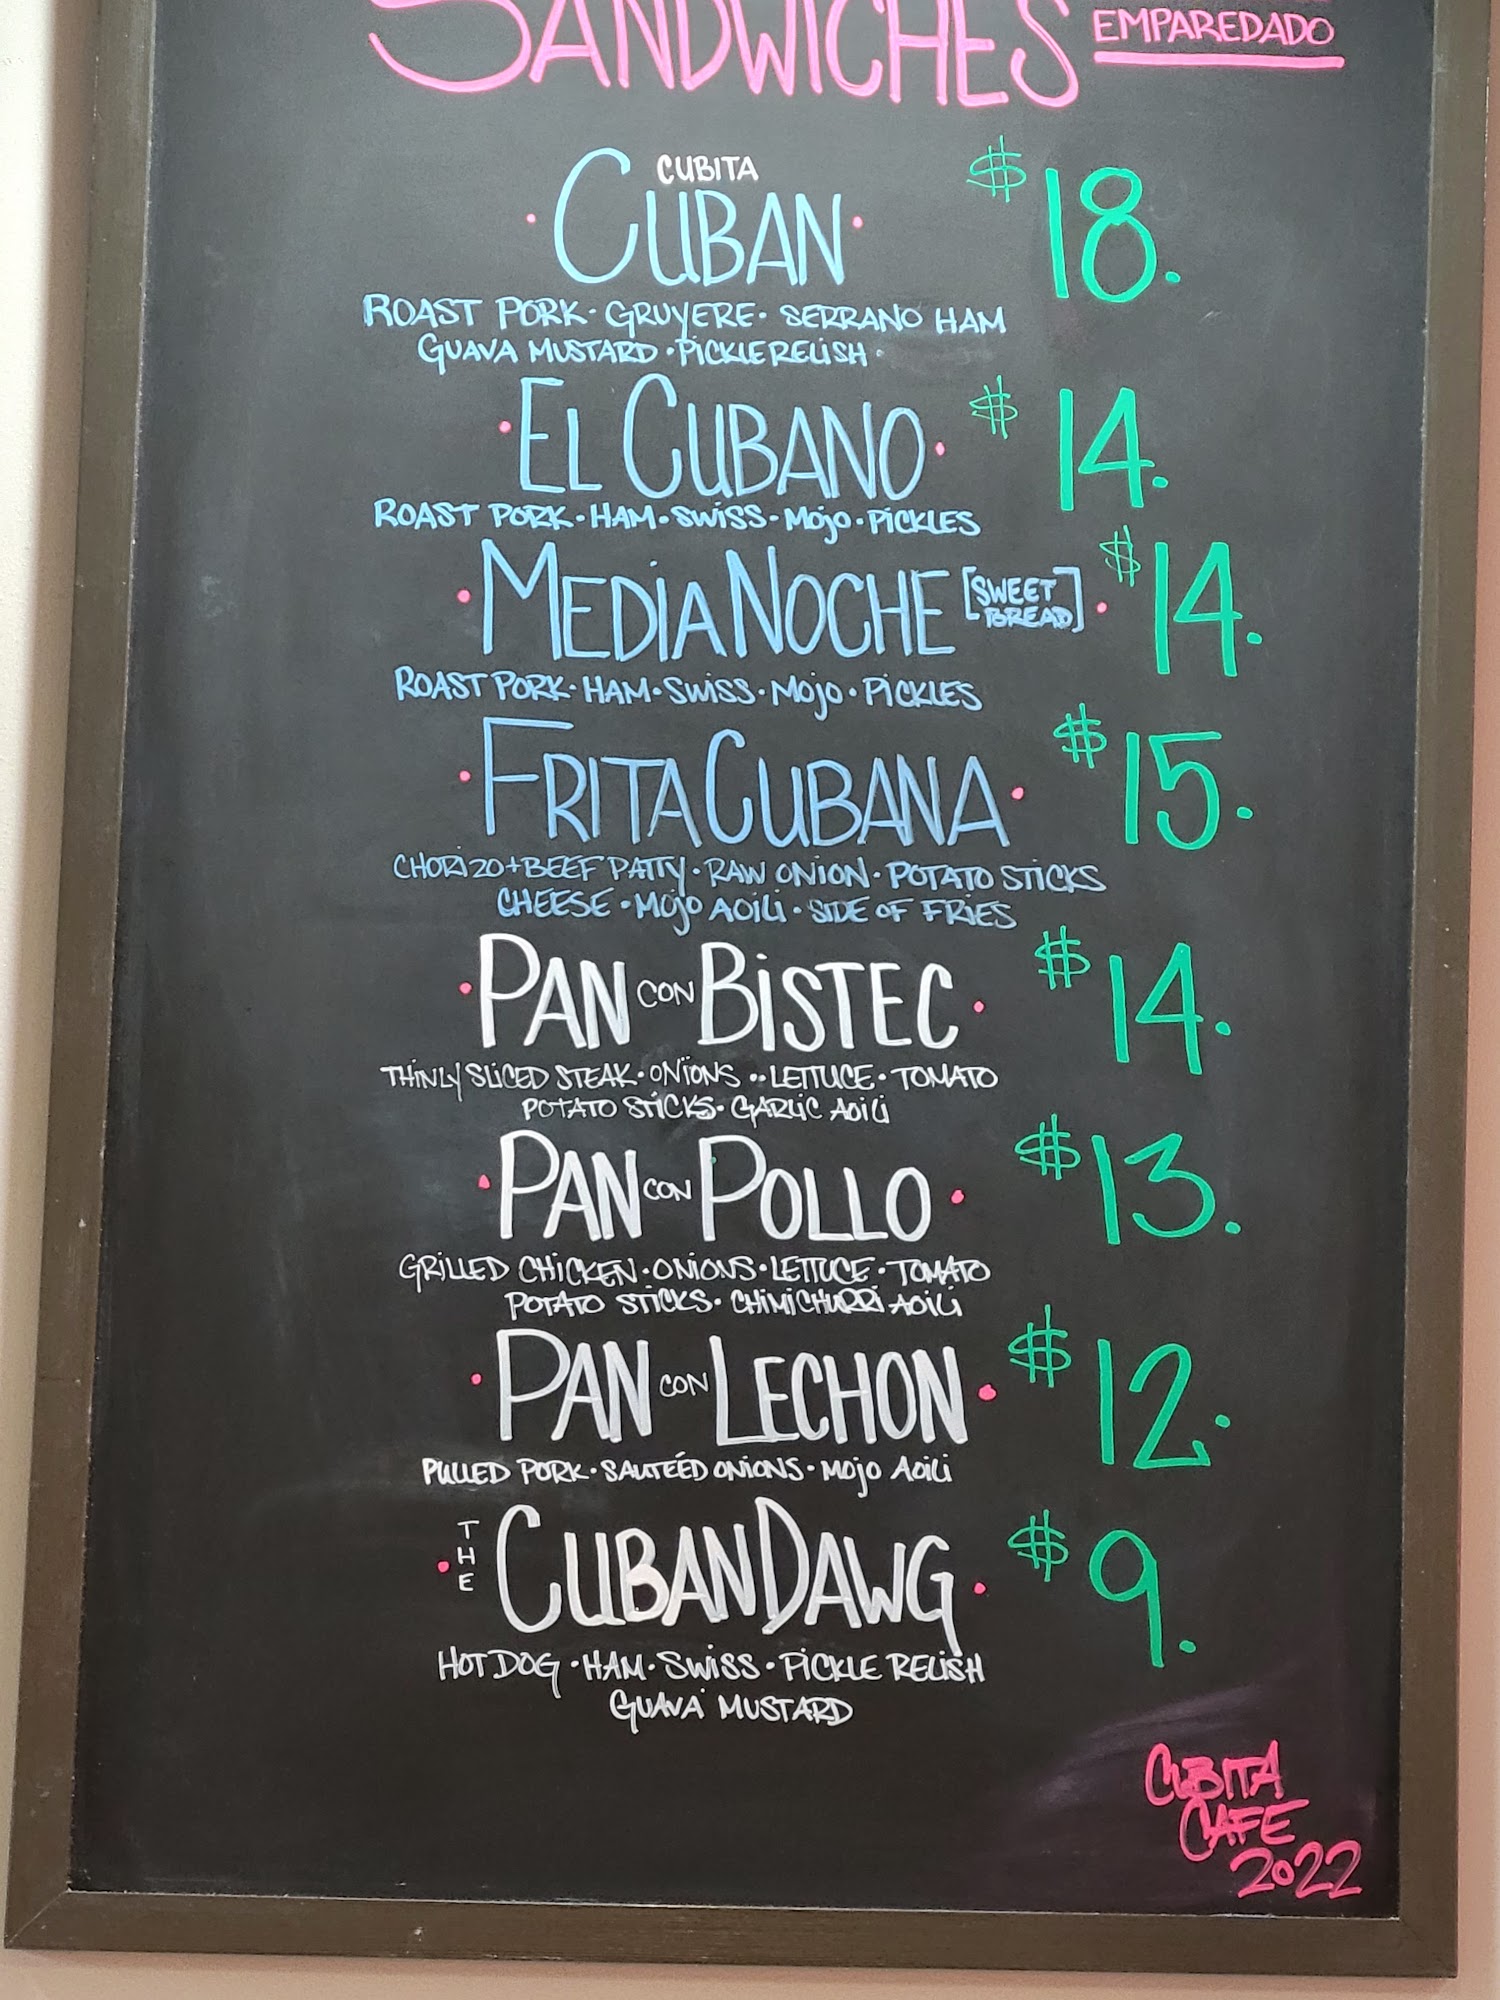 SANDWICHES EMPAREDADO
CUBITA
• CUBAN • $18.
ROAST PORK • GRUYERE • SERRANO HAM
GUAVA MUSTARD • PICKLE RELISH •
• EL CUBANO • $14.
ROAST PORK • HAM • SWISS • MOJO • PICKLES
• MEDIA NOCHE [SWEET BREAD] • $14.
ROAST PORK • HAM • SWISS • MOJO • PICKLES
• FRITA CUBANA • $15.
CHORIZO + BEEF PATTY • RAW ONION • POTATO STICKS
CHEESE • MOJO AOILI • SIDE OF FRIES
• PAN CON BISTEC • $14.
THINLY SLICED STEAK • ONIONS •• LETTUCE • TOMATO
POTATO STICKS • GARLIC AOILI
• PAN CON POLLO • $13.
GRILLED CHICKEN • ONIONS • LETTUCE • TOMATO
POTATO STICKS • CHIMICHURRI AOILI
• PAN CON LECHON • $12.
PULLED PORK • SAUTÉED ONIONS • MOJO AOILI
• THE CUBAN DAWG • $9.
HOT DOG • HAM • SWISS • PICKLE RELISH
GUAVA MUSTARD
CUBITA
CAFE
2022